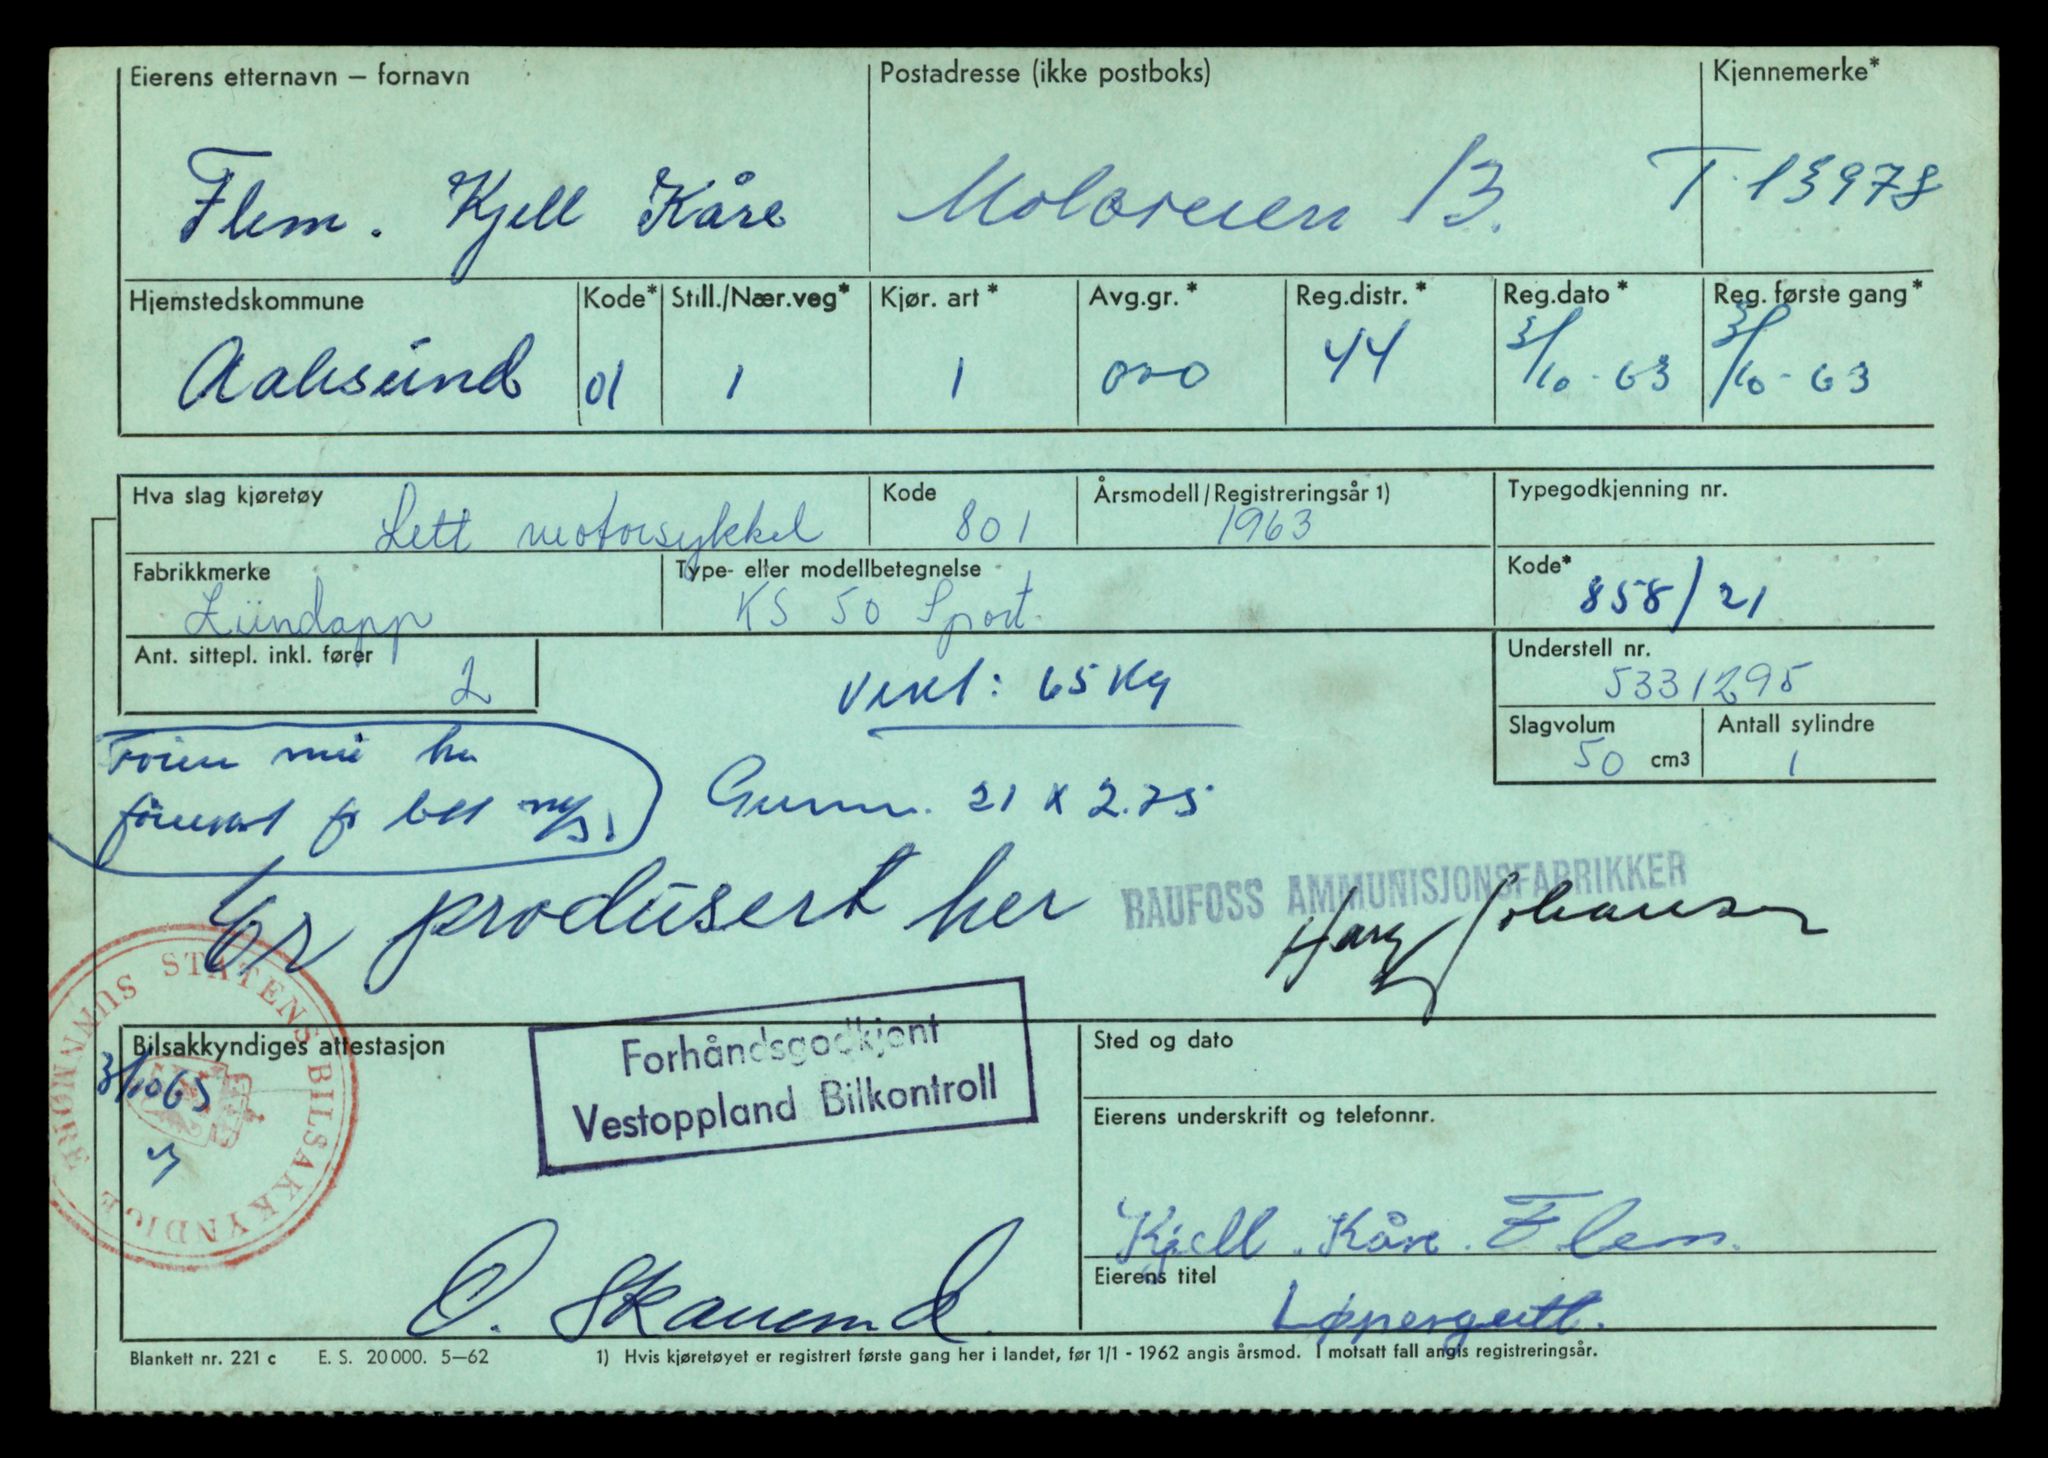 Eierens etternavn – fornavn Postadresse (ikke postboks) Kjennemerke*
Flem. Kjell Kåre Moloveien 13. T-13978
Hjemstedskommune Kode* Still./Nær.veg* Kjør. art* Avg.gr.* Reg.distr.* Reg.dato* Reg. første gang*
Aalesund 01 1 1 44 3/10-63 3/10-63
Hva slag kjøretøy Kode Årsmodell/Registreringsår 1) Typegodkjenning nr.
Lett motorsykkel 801 1963
Fabrikkmerke Type- eller modellbetegnelse Kode*
Zündapp KS 50 Sport 858/21
Ant. sittepl. inkl. fører Understell nr.
2 Vekt: 65 Kg 5331295
Slagvolum Antall sylindre
50 cm3 1
Gummi. 21 x 2.75
Er produsert her RAUFOSS AMMUNISJONSFABRIKKER
Johansen
STATENS BILSAKKYNDIGE SUNNMØRE
Bilsakkyndiges attestasjon Forhåndsgodkjent Sted og dato
Vestoppland Bilkontroll
Eierens underskrift og telefonnr.
Kjell. Kåre. Flem.
Eierens titel
Løpergutt.
Blankett nr. 221 c E. S. 20 000. 5–62 1) Hvis kjøretøyet er registrert første gang her i landet, før 1/1 - 1962 angis årsmod. I motsatt fall angis registreringsår.